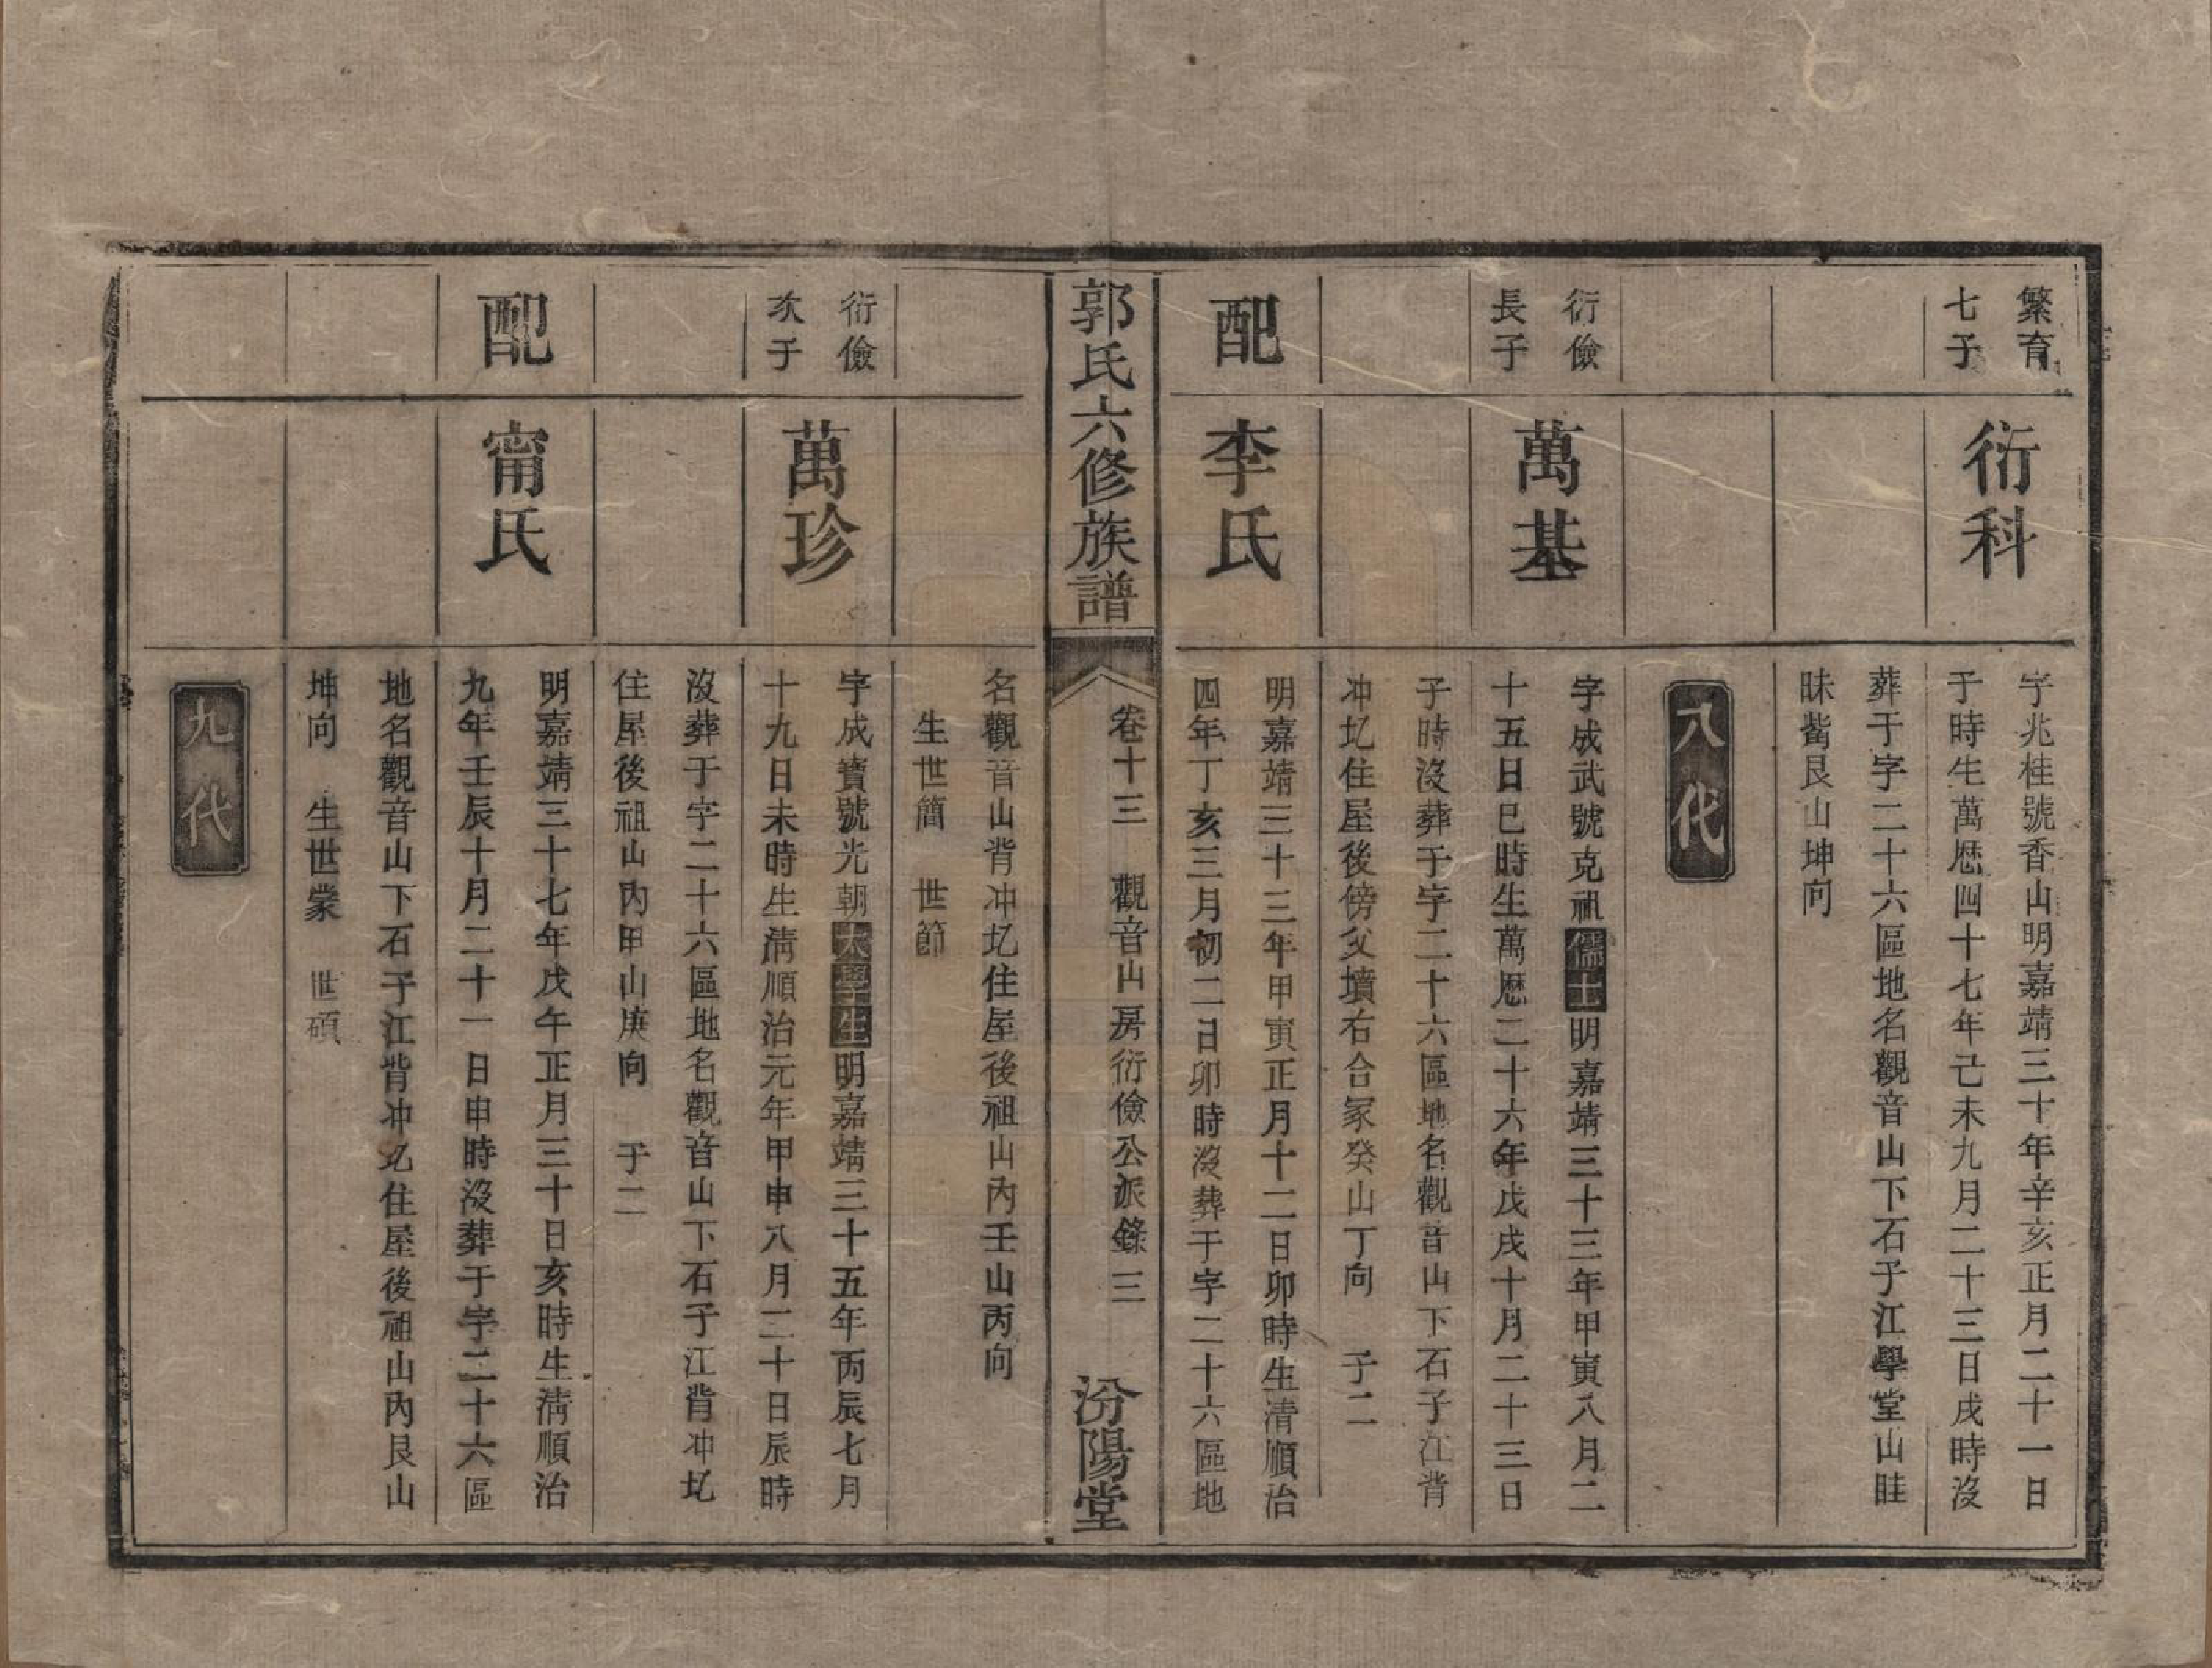 繁育
七子
衍科
字兆桂號香山明嘉靖三十年辛亥正月二十一日
子時生萬厯四十七年己未九月二十三日戌時沒
葬于字二十六區地名觀音山下石子江學堂山眭
眛觜艮山坤向
八代
衍儉
長子
萬基
字成武號克祖儒士明嘉靖三十三年甲寅八月二
十五日巳時生萬厯二十六年戊戌十月二十三日
子時沒葬于字二十六區地名觀音山下石子江背
冲圠住屋後傍父墳右合冢癸山丁向 子二
配
李氏
明嘉靖三十三年甲寅正月十二日卯時生清順治
四年丁亥三月初二日卯時沒葬于字二十六區地
郭氏六修族譜
卷十三 觀音山房衍儉公派錄 三
汾陽堂
名觀音山背冲圠住屋後祖山內壬山丙向
生世簡 世節
衍儉
次子
萬珍
字成寶號光朝太學生明嘉靖三十五年丙辰七月
十九日未時生清順治元年甲申八月二十日辰時
沒葬于字二十六區地名觀音山下石子江背冲圠
住屋後祖山內甲山庚向 子二
配
甯氏
明嘉靖三十七年戊午正月三十日亥時生清順治
九年壬辰十月二十一日申時沒葬于字二十六區
地名觀音山下石子江背冲圠住屋後祖山內艮山
坤向 生世蒙 世碩
九代